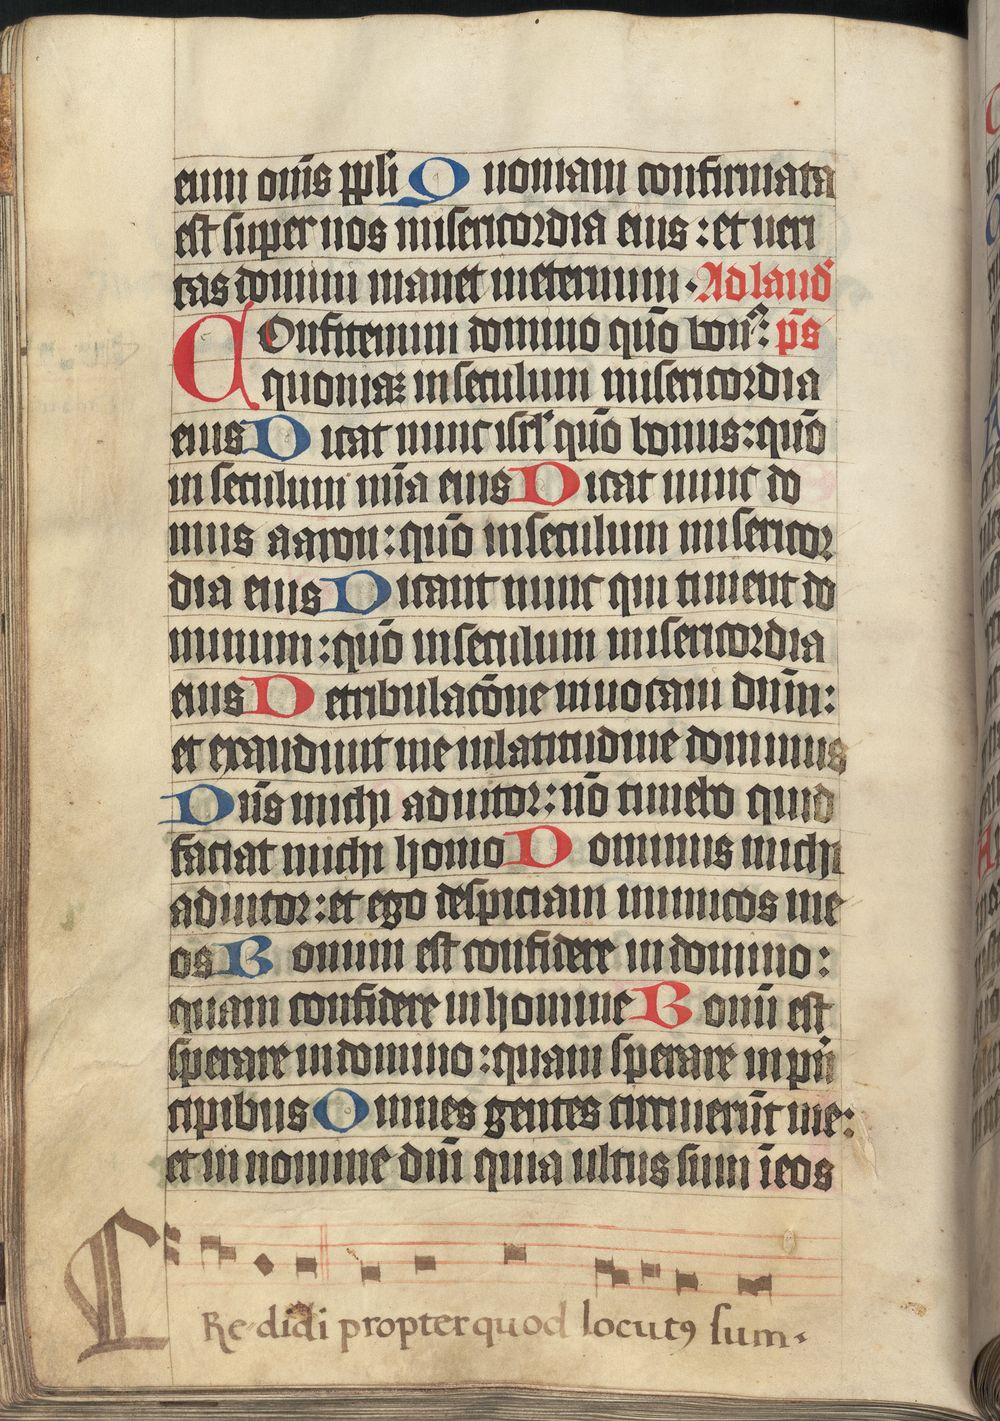 eum om̄s ppli Quoniam confirmata
est super nos misericordia eius : et veri
tas domini manet in eternum · Ad laud̄
Confitemini domino quō bonꝰ : p̄s
quoniaꝫ in seculum misericordia
eius Dicat nunc isrl̄ quō bonus : quō
in seculum mīa eius Dicat nunc do
mus aaron : quō in seculum misericor
dia eius Dicant nunc qui timent do
minum : quō in seculum misericordia
eius De tribulacōne invocavi dūm :
et exaudivit me in latitudine dominus
Dn̄s michi adiutor : nō timebo quid
faciat michi homo Dominus michi
adiutor : et ego despiciam inimicos me
os Bonum est confidere in domino :
quam confidere in homine Bonū est
sperare in domino : quam sperare in prī
cipibus Omnes gentes circuierūt me :
et in nomine dn̄i quia ultus sum ī eos
CRe-didi propter quod locutꝰ sum ·